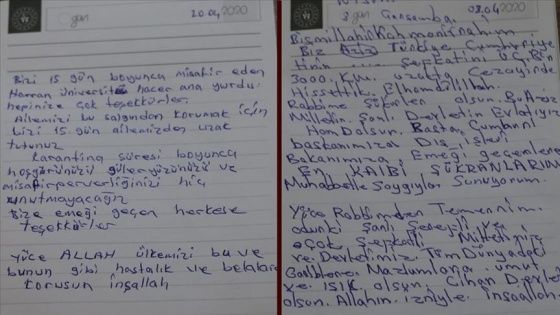 gün
20.04.2020
Bizi 15 gün boyunca misafir eden
Harran üniversite hacer ana yurdu
hepinize çok teşekkürler.
Ailemizi bu salgından korumak için
bizi 15 gün ailemizden uzak
tutunuz
Karantina süresi boyunca
hoşgörünüzü güleryüzünüzü ve
misafirperverliğinizi hiç
unutmayacağız
Bize emeği geçen herkese
teşekkürler
Yüce ALLAH ülkemizi bu ve
bunun gibi hastalık ve belalardan
korusun inşallah
gün Çarşamba
08.04.2020
Bismillahirrahmanirrahim
Biz Aziz Türkiye Cumhuriye
tinin Şefkatini
3000. K.M. uzakta Cezayirde
Hissettik. Elhamdülillah.
Rabbime Şükürler olsun. Bu Aziz
Milletin. Şanlı Devletin Evladıyız
Hamdolsun. Başta Cumhur
başkanımıza Dış işleri
Bakanımıza, Emeği geçenlere
EN KALBİ ŞÜKRANLARIMI
Muhabbetle Saygıylar Sunuyorum.
Yüce Rabbimden Temennim.
Şanlı Şerefli ve
Şefkatli Milletimiz
ve Devletimiz Tüm Dünyadaki
Mazlumlara umut
ve IŞIK olsun. Cihan Devleti
olsun. Allahın izniyle inşaallah.